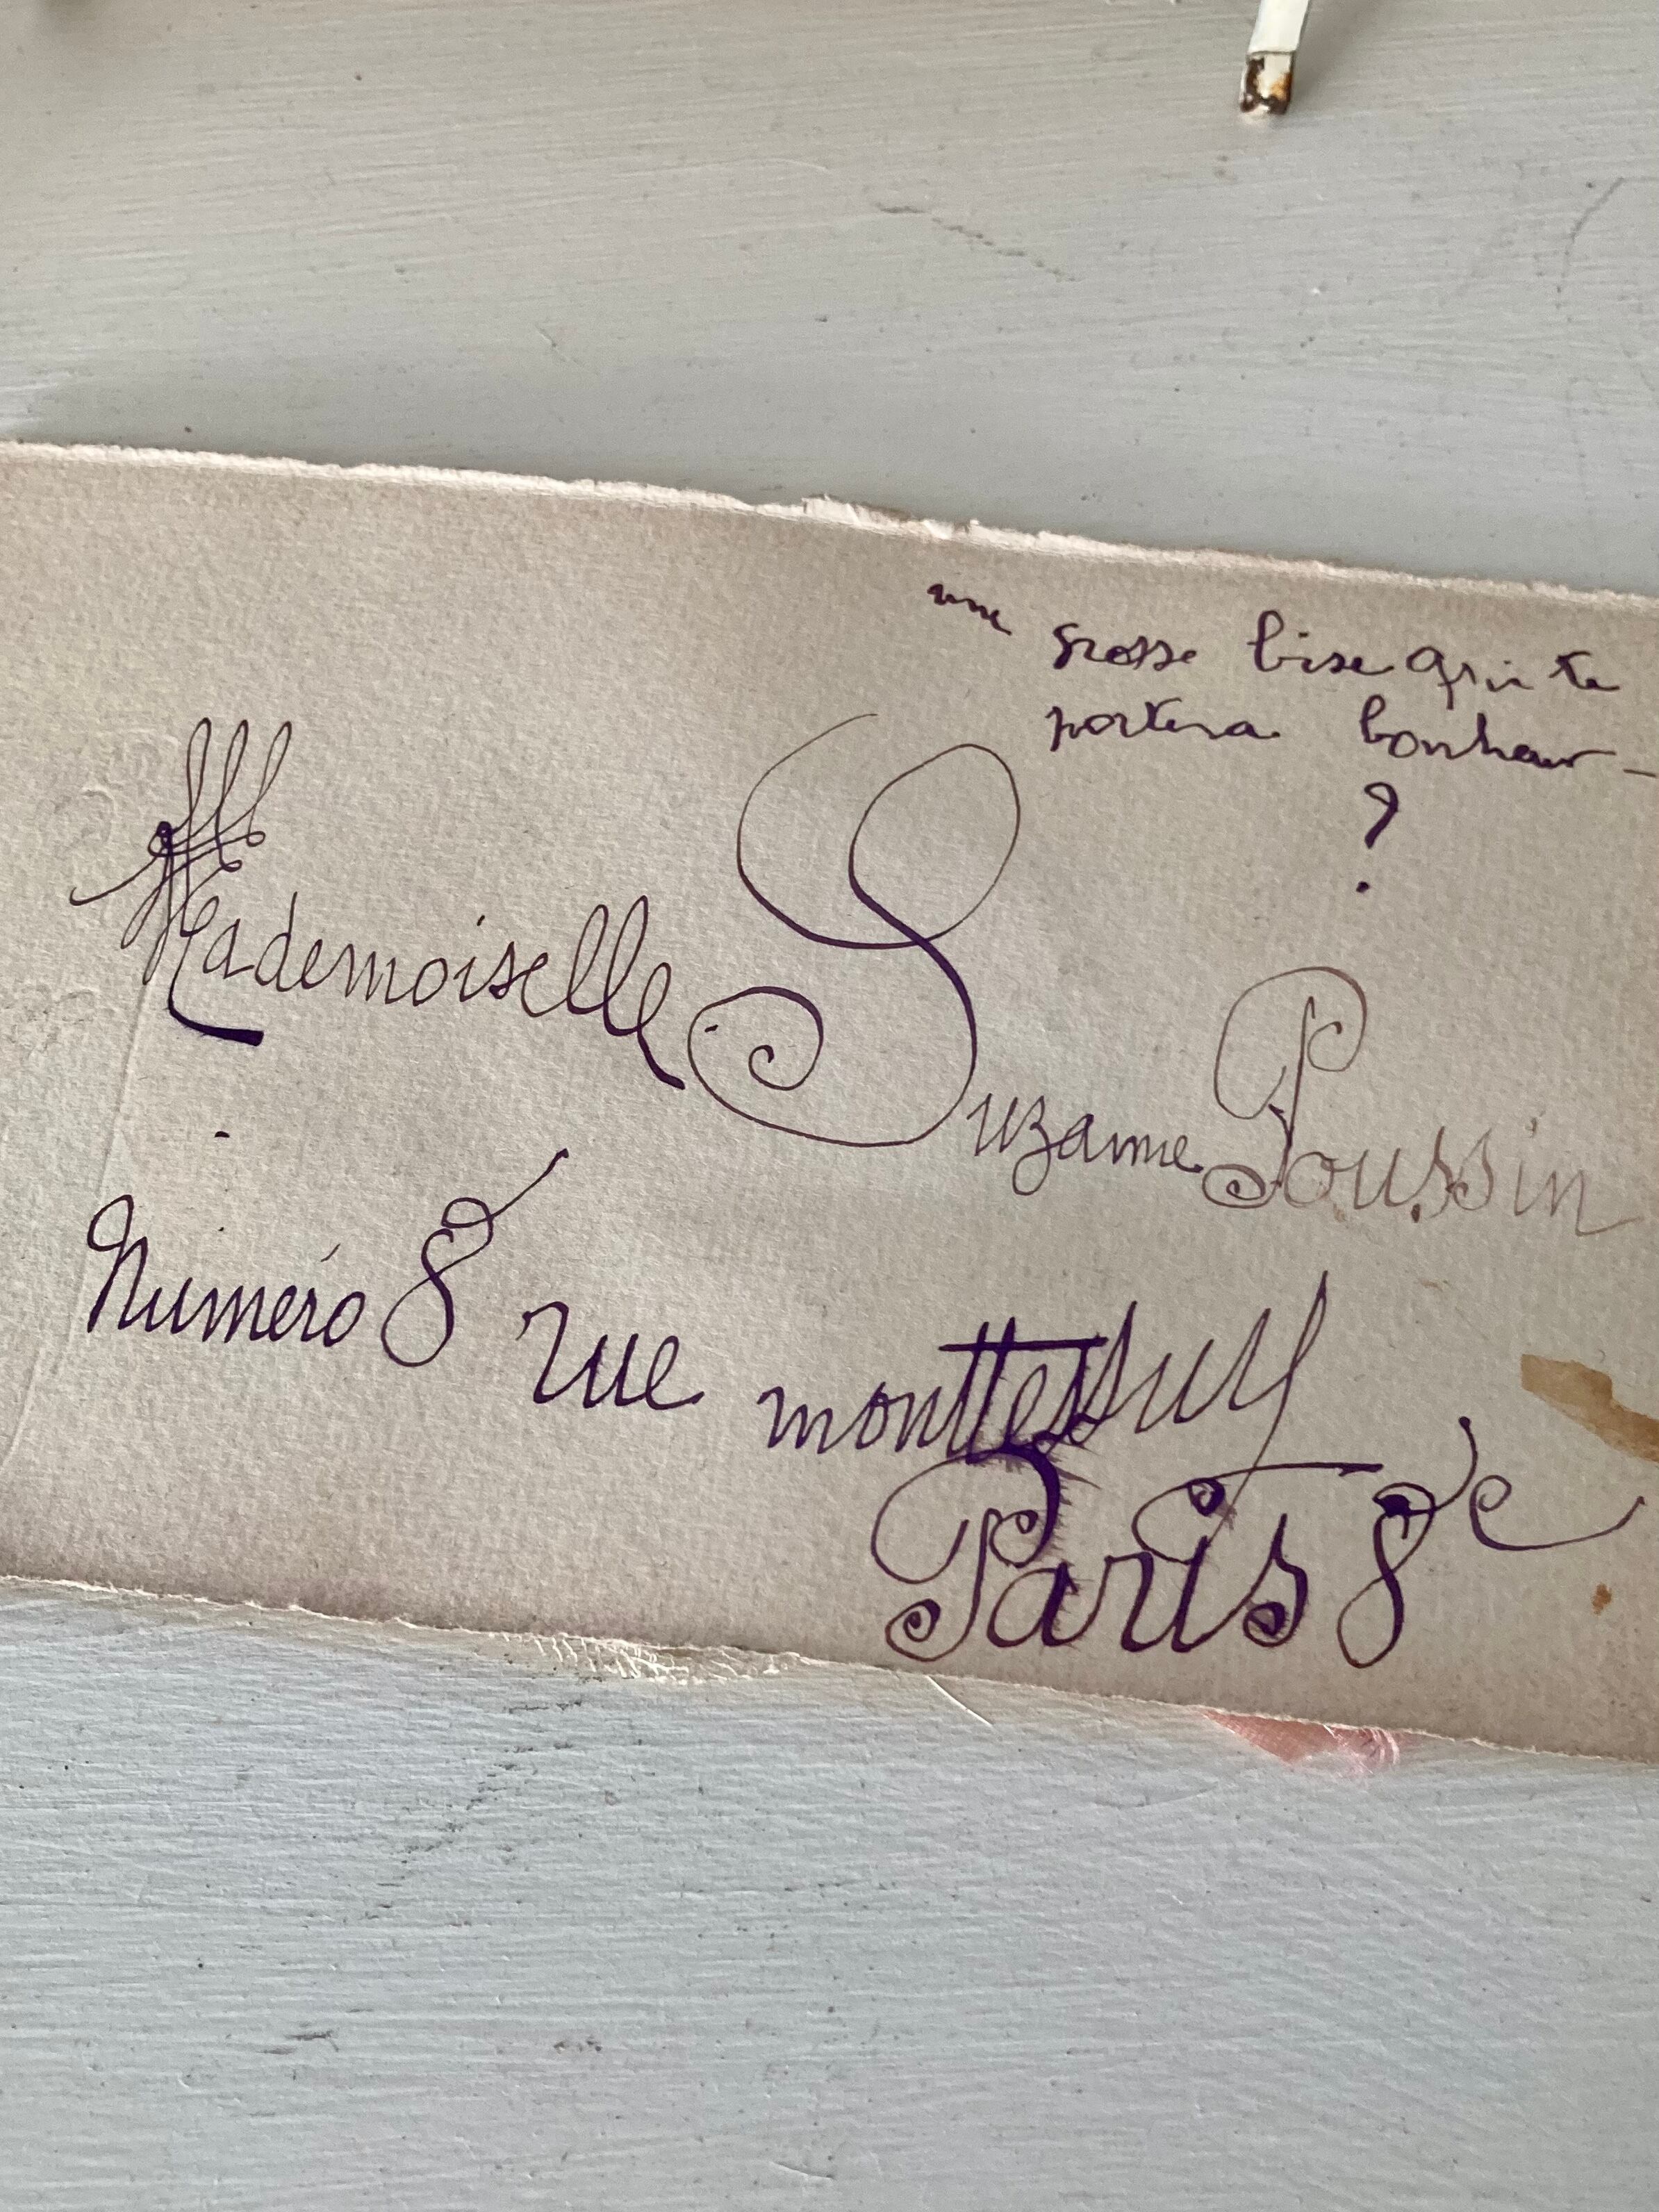 une
grosse bise qui te
portera bonheur –
?
Mademoiselle Suzanne Poussin
Numéro 8 rue monttessuy
Paris 8e